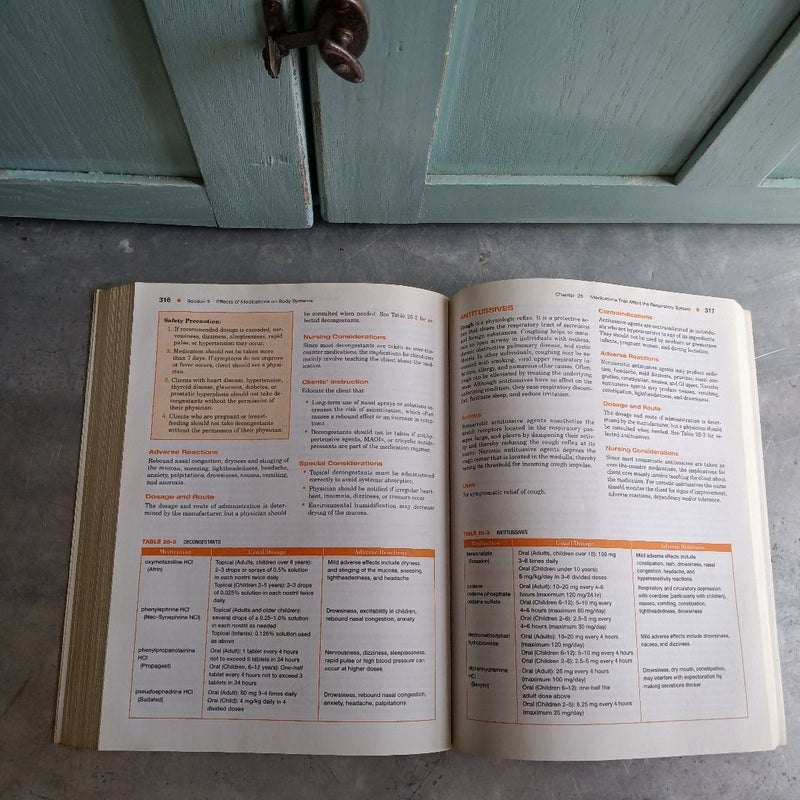 316 • Section 5 Effects of Medications on Body Systems
Safety Precaution:
1. If recommended dosage is exceeded, ner-
vousness, dizziness, sleeplessness, rapid
pulse, or hypertension may occur.
2. Medication should not be taken more
than 7 days. If symptoms do not improve
or fever occurs, client should see a physi-
cian.
3. Clients with heart disease, hypertension,
thyroid disease, glaucoma, diabetes, or
prostatic hyperplasia should not take de-
congestants without the permission of
their physician.
4. Clients who are pregnant or breast-
feeding should not take decongestants
without the permission of their physician.
Adverse Reactions
Rebound nasal congestion, dryness and stinging of
the mucosa, sneezing, lightheadedness, headache,
anxiety, palpitations, drowsiness, nausea, vomiting,
and anorexia.
Dosage and Route
The dosage and route of administration is deter-
mined by the manufacturer, but a physician should
be consulted when needed. See Table 25-2 for se-
lected decongestants.
Nursing Considerations
Since most decongestants are taken as over-the-
counter medications, the implications for client care
mainly involve teaching the client about the med-
ication.
Clients' Instruction
Educate the client that
• Long-term use of nasal sprays or solutions in-
creases the risk of sensitization, which often
causes a rebound effect or an increase in symp-
toms.
• Decongestants should not be taken if antihy-
pertensive agents, MAOIs, or tricyclic antide-
pressants are part of the medication regimen.
Special Considerations
• Topical decongestants must be administered
correctly to avoid systemic absorption.
• Physician should be notified if irregular heart-
beat, insomnia, dizziness, or tremors occur.
• Environmental humidification may decrease
drying of the mucosa.
TABLE 25-2 DECONGESTANTS
Medication Usual Dosage Adverse Reactions
oxymetazoline HCl
(Afrin)
Topical (Adults, children over 6 years):
2–3 drops or sprays of 0.5% solution
in each nostril twice daily
Topical (Children 2–5 years): 2–3 drops
of 0.025% solution in each nostril twice
daily
Mild adverse effects include dryness
and stinging of the mucosa, sneezing,
lightheadedness, and headache
phenylephrine HCl
(Neo-Synephrine HCl)
Topical (Adults and older children):
several drops of a 0.25–1.0% solution
in each nostril as needed
Topical (Infants): 0.125% solution used
as above
Drowsiness, excitability in children,
rebound nasal congestion, anxiety
phenylpropanolamine
HCl
(Propagest)
Oral (Adult): 1 tablet every 4 hours
not to exceed 6 tablets in 24 hours
Oral (Children, 6–12 years): One-half
tablet every 4 hours not to exceed 3
tablets in 24 hours
Nervousness, dizziness, sleeplessness,
rapid pulse or high blood pressure can
occur at higher doses
pseudoephedrine HCl
(Sudafed)
Oral (Adult): 60 mg 3–4 times daily
Oral (Child): 4 mg/kg daily in 4
divided doses
Drowsiness, rebound nasal congestion,
anxiety, headache, palpitations
Chapter 25 Medications That Affect the Respiratory System • 317
ANTITUSSIVES
Cough is a physiologic reflex. It is a protective ac-
tion that clears the respiratory tract of secretions
and foreign substances. Coughing helps to main-
tain an open airway in individuals with asthma,
chronic obstructive pulmonary disease, and cystic
fibrosis. In other individuals, coughing may be as-
sociated with smoking, viral upper respiratory in-
fections, allergy, and numerous other causes. Often,
cough can be alleviated by treating the underlying
Although antitussives have no effect on the
underlying condition, they ease respiratory discom-
fort, facilitate sleep, and reduce irritation.
Actions
Nonnarcotic antitussive agents anesthetize the
stretch receptors located in the respiratory pas-
sages, lungs, and pleura by dampening their activ-
ity and thereby reducing the cough reflex at its
source. Narcotic antitussive agents depress the
cough center that is located in the medulla, thereby
raising the threshold for incoming cough impulses.
Uses
For symptomatic relief of cough.
Contraindications
Antitussive agents are contraindicated in individu-
als who are hypersensitive to any of its ingredients.
They should not be used by newborn or premature
infants, pregnant women, and during lactation.
Adverse Reactions
Nonnarcotic antitussive agents may produce seda-
tion, headache, mild dizziness, pruritus, nasal con-
gestion, constipation, nausea, and GI upset. Narcotic
antitussive agents may produce nausea, vomiting,
constipation, lightheadedness, and drowsiness.
Dosage and Route
The dosage and route of administration is deter-
mined by the manufacturer, but a physician should
be consulted when needed. See Table 25-3 for se-
lected antitussives.
Nursing Considerations
Since most nonnarcotic antitussives are taken as
over-the-counter medications, the implications for
client care mainly involve teaching the client about
the medication. For narcotic antitussives the nurse
should monitor the client for signs of improvement,
adverse reactions, dependency and/or tolerance.
TABLE 25-3 ANTITUSSIVES
Medication Usual Dosage Adverse Reactions
benzonatate
(Tessalon)
Oral (Adults, children over 10): 100 mg
3–6 times daily
Oral (Children under 10 years):
8 mg/kg/day in 3–6 divided doses
Mild adverse effects include
constipation, rash, drowsiness, nasal
congestion, headache, and
hypersensitivity reactions.
codeine
codeine phosphate
codeine sulfate
Oral (Adult): 10–20 mg every 4–6
hours (maximum 120 mg/24 hr)
Oral (Children 6–12): 5–10 mg every
4–6 hours (maximum 60 mg/day)
Oral (Children 2–6): 2.5–5 mg every
4–6 hours (maximum 30 mg/day)
Respiratory and circulatory depression
with overdose (particularly with children),
nausea, vomiting, constipation,
lightheadedness, drowsiness
dextromethorphan
hydrobromide
Oral (Adults): 10–20 mg every 4 hours
(maximum 120 mg/day)
Oral (Children 6–12): 5–10 mg every 4 hours
Oral (Children 2–6): 2.5–5 mg every 4 hours
Mild adverse effects include drowsiness,
nausea, and dizziness.
diphenhydramine
HCl
(Benylin)
Oral (Adult): 25 mg every 4 hours
(maximum 100 mg/day)
Oral (Children 6–12): one-half the
adult dose above
Oral (Children 2–5): 6.25 mg every 4 hours
(maximum 25 mg/day)
Drowsiness, dry mouth, constipation,
may interfere with expectoration by
making secretions thicker